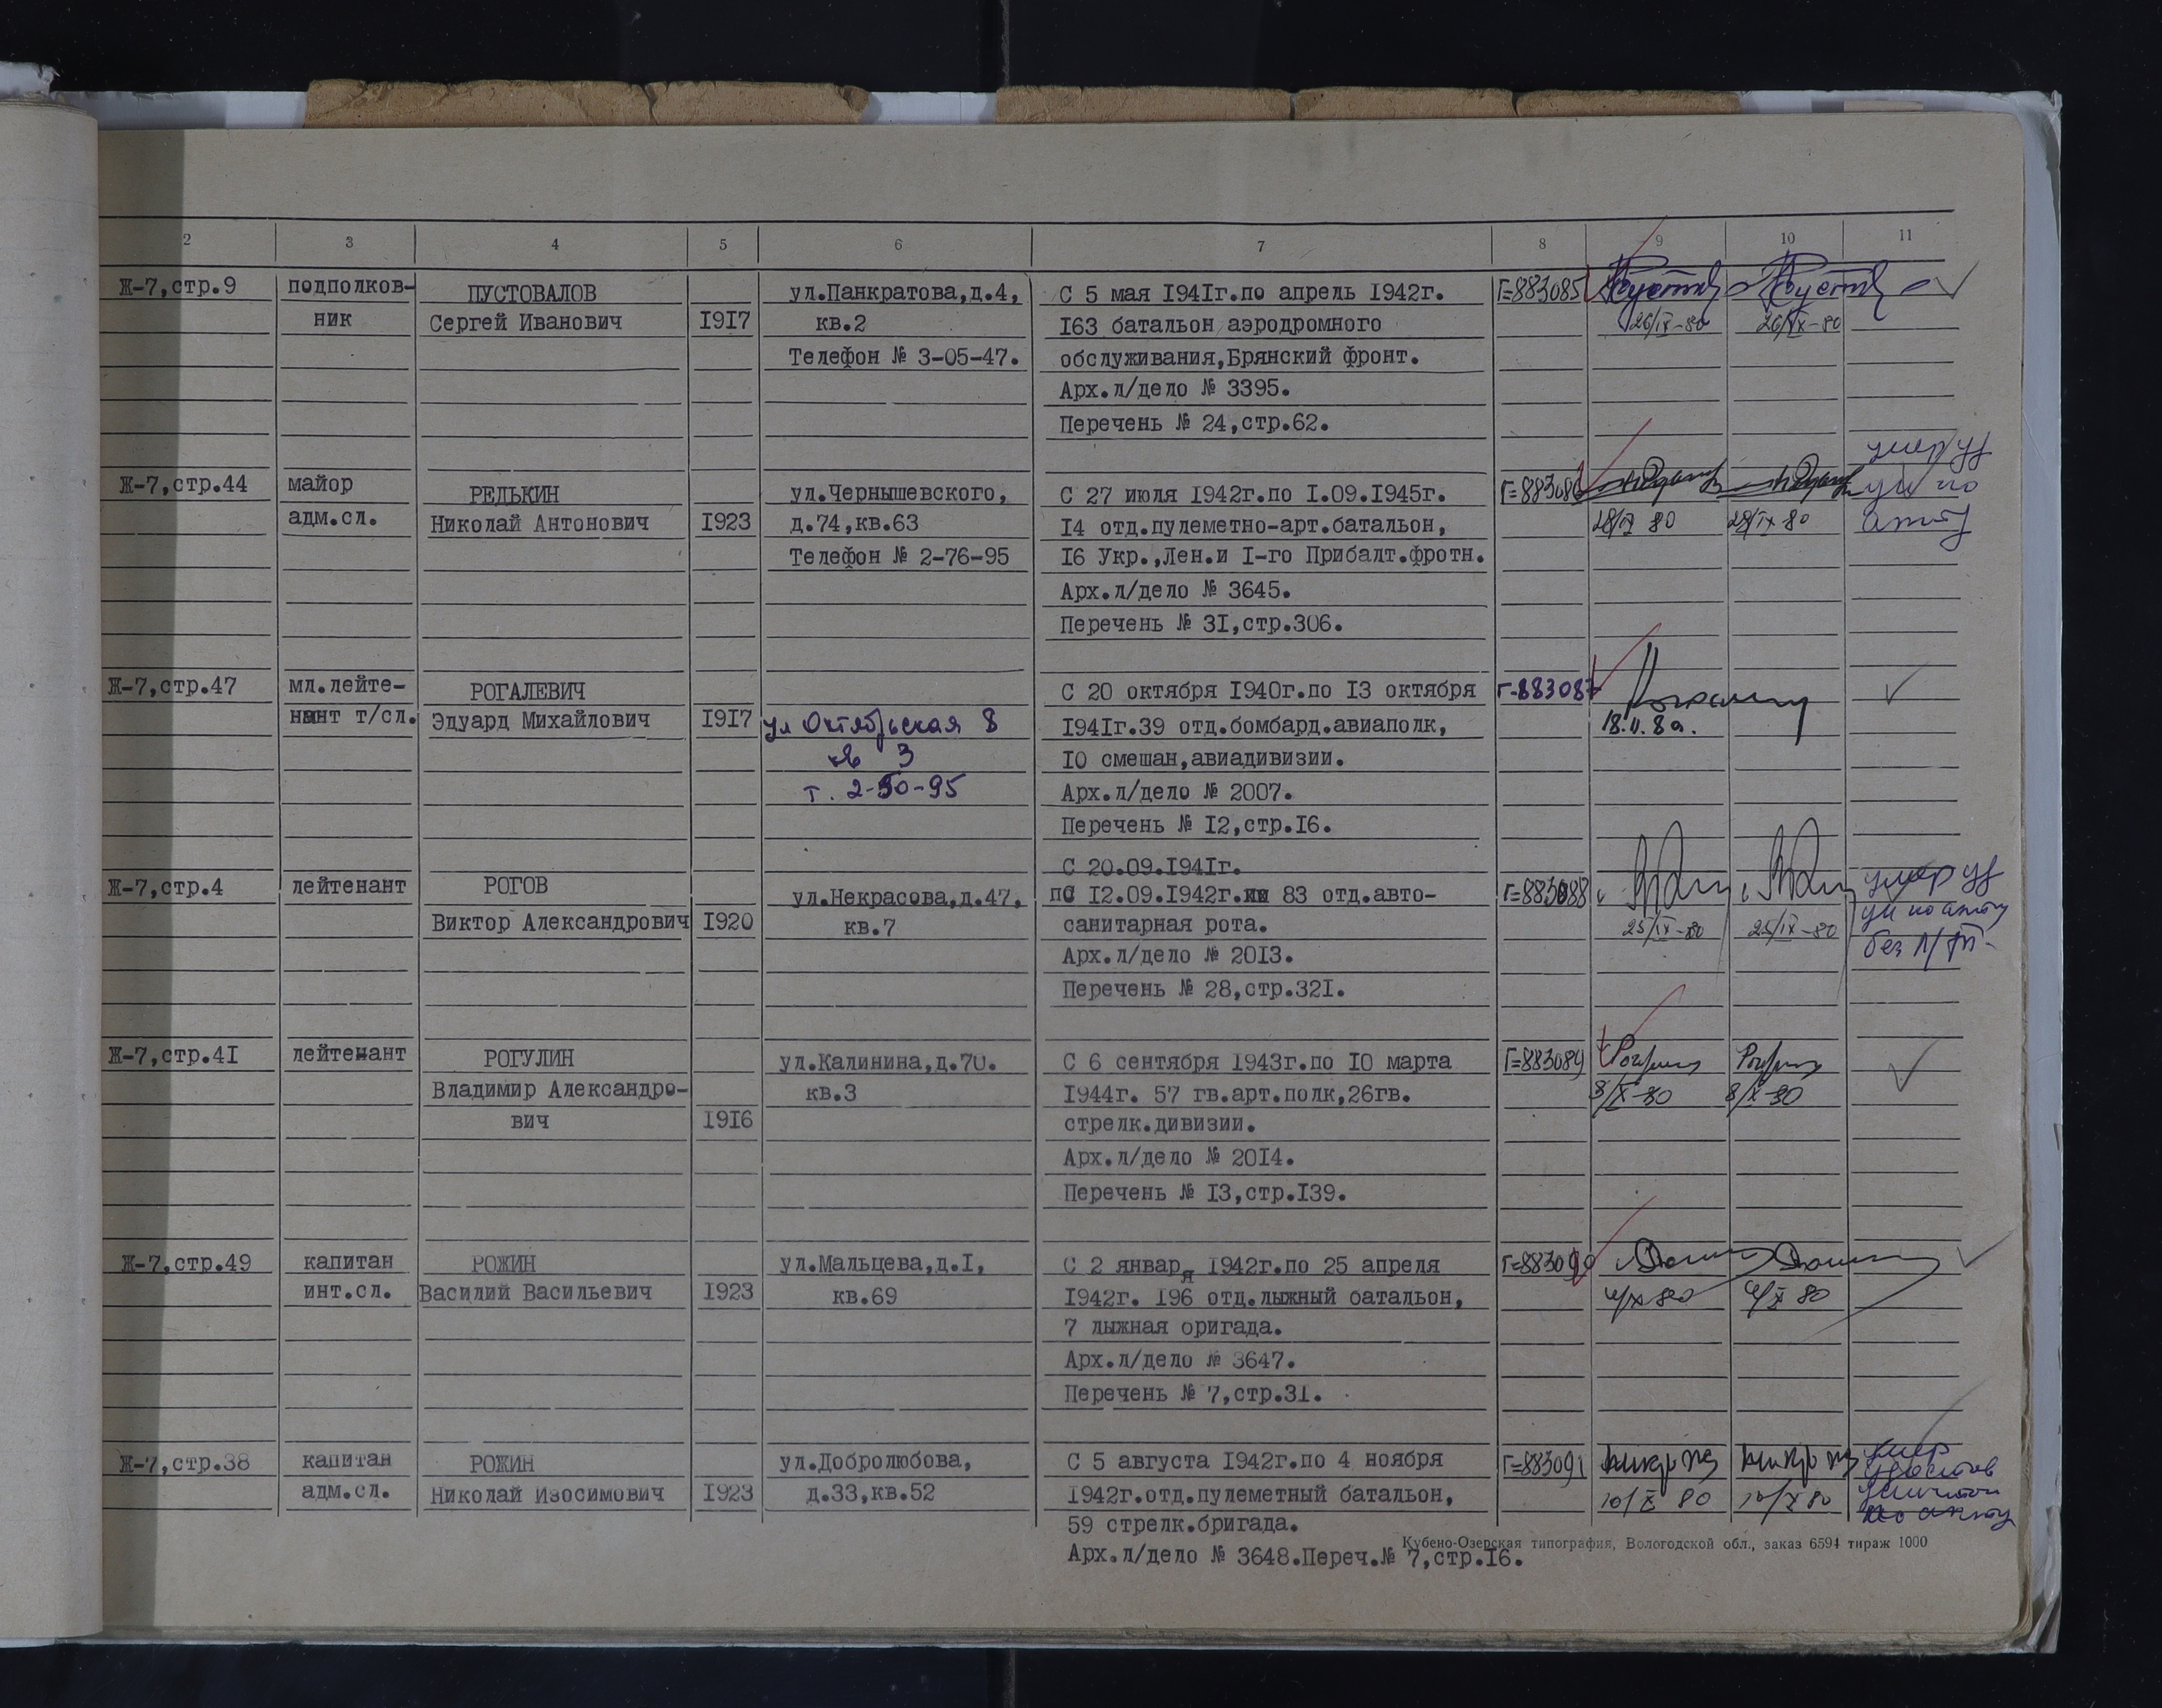 2 3 4 5 6 7 8 9 10 11
Ж-7,стр.9 подполков- ПУСТОВАЛОВ ул.Панкратова,д.4, С 5 мая 1941г.по апрель 1942г. Г=883085
ник Сергей Иванович 1917 кв.2 163 батальон аэродромного 26/IX-80 26/IX-80
Телефон № 3-05-47. обслуживания,Брянский фронт.
Арх.л/дело № 3395.
Перечень № 24,стр.62.
умер уд
Ж-7,стр.44 майор РЕДЬКИН ул.Чернышевского, С 27 июля 1942г.по 1.09.1945г. Г=883086 ун по
адм.сл. Николай Антонович 1923 д.74,кв.63 14 отд.пулеметно-арт.батальон, 28/IX 80 28/IX 80 акту
Телефон № 2-76-95 16 Укр.,Лен.и 1-го Прибалт.фротн.
Арх.л/дело № 3645.
Перечень № 31,стр.306.
Ж-7,стр.47 мл.лейте- РОГАЛЕВИЧ С 20 октября 1940г.по 13 октября Г-883087
нант т/сл. Эдуард Михайлович 1917 ул Октябрьская 8 1941г.39 отд.бомбард.авиаполк,
кв 3 10 смешан,авиадивизии.
т. 2-50-95 Арх.л/дело № 2007.
Перечень № 12,стр.16.
С 20.09.1941г.
Ж-7,стр.4 лейтенант РОГОВ ул.Некрасова,д.47, по 12.09.1942г. 83 отд.авто- Г=883088 умер уд
Виктор Александрович 1920 кв.7 санитарная рота. 25/IX-80 25/IX-80 ун по акту
Арх.л/дело № 2013. без
Перечень № 28,стр.321.
Ж-7,стр.41 лейтенант РОГУЛИН ул.Калинина,д.70. С 6 сентября 1943г.по 10 марта Г=883089
Владимир Александро- кв.3 1944г. 57 гв.арт.полк,26гв. 8/X-80 8/X-80
вич 1916 стрелк.дивизии.
Арх.л/дело № 2014.
Перечень № 13,стр.139.
Ж-7,стр.49 капитан РОЖИН ул.Мальцева,д.1, С 2 января 1942г.по 25 апреля Г=883090
инт.сл. Василий Васильевич 1923 кв.69 1942г. 196 отд.лыжный батальон,
7 лыжная бригада.
Арх.л/дело № 3647.
Перечень № 7,стр.31.
Ж-7,стр.38 капитан РОЖИН ул.Добролюбова, С 5 августа 1942г.по 4 ноября Г=883091 умер
адм.сл. Николай Изосимович 1923 д.33,кв.52 1942г.отд.пулеметный батальон, 10/X 80 10/X 80
59 стрелк.бригада. по акту
Кубено-Озерская типография, Вологодской обл., заказ 6594 тираж 1000
Арх.л/дело № 3648.Переч.№ 7,стр.16.